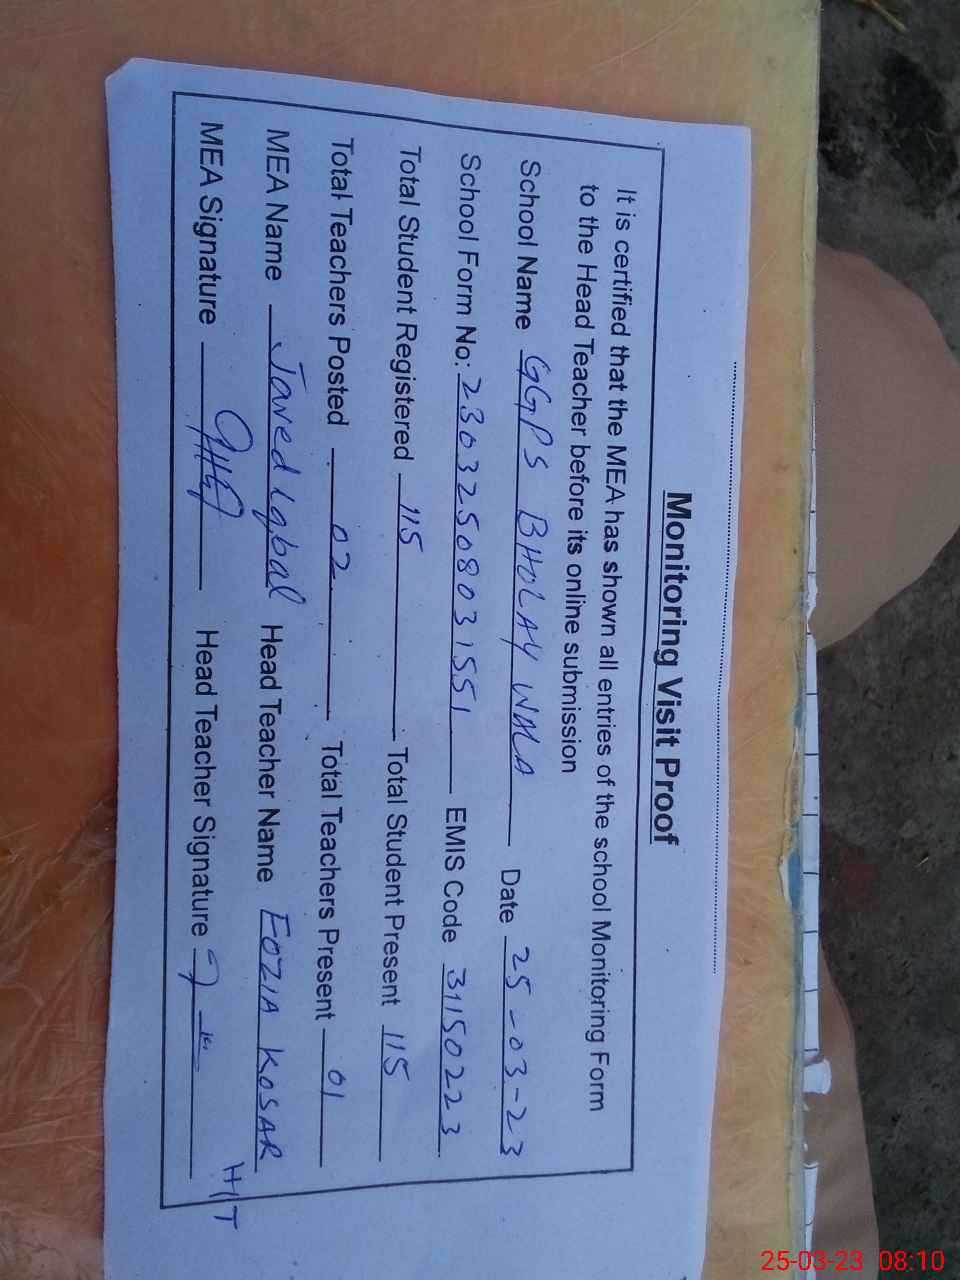 Monitoring Visit Proof
It is certified that the MEA has shown all entries of the school Monitoring Form
to the Head Teacher before its online submission
School Name GGPS BHOLAY WALA Date 25-03-23
School Form No: 23032508031551 EMIS Code 31150223
Total Student Registered 115 Total Student Present 115
Total Teachers Posted 02 Total Teachers Present 01
MEA Name Javed Iqbal Head Teacher Name FOZIA KOSAR
MEA Signature Head Teacher Signature H/T
25-03-23 08:10